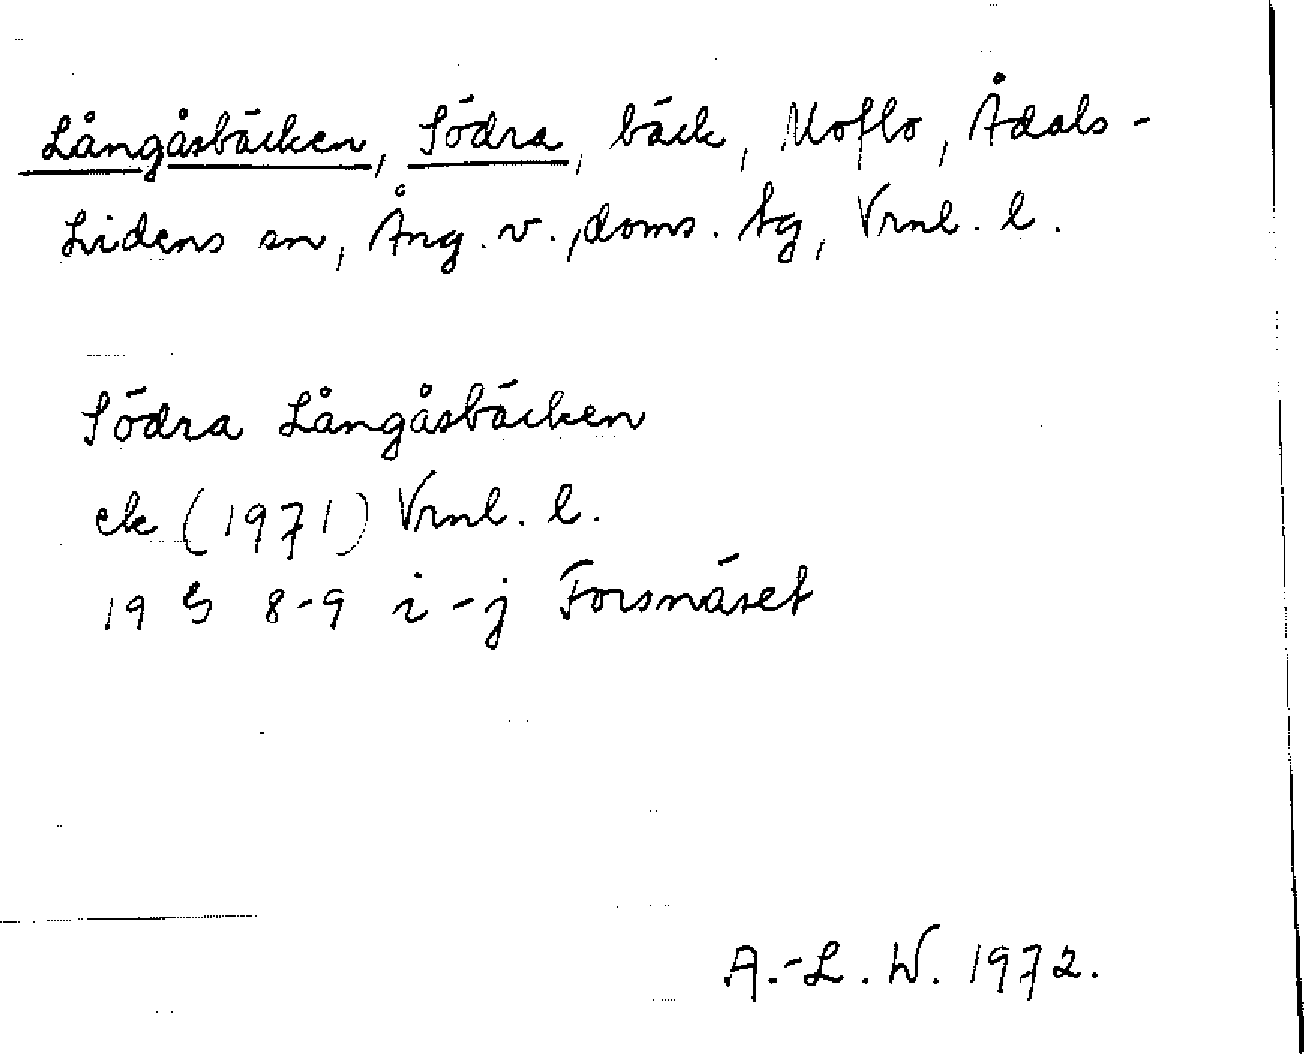 Långåsbäcken, Södra, bäck, Moflo, Ådals-
Lidens sn, Ång. v., doms. tg, Vrnl. l.
Södra Långåsbäcken
ek (1971) Vrnl. l.
19 G 8-9 i-j Forsnäset
A.-L. W. 1972.